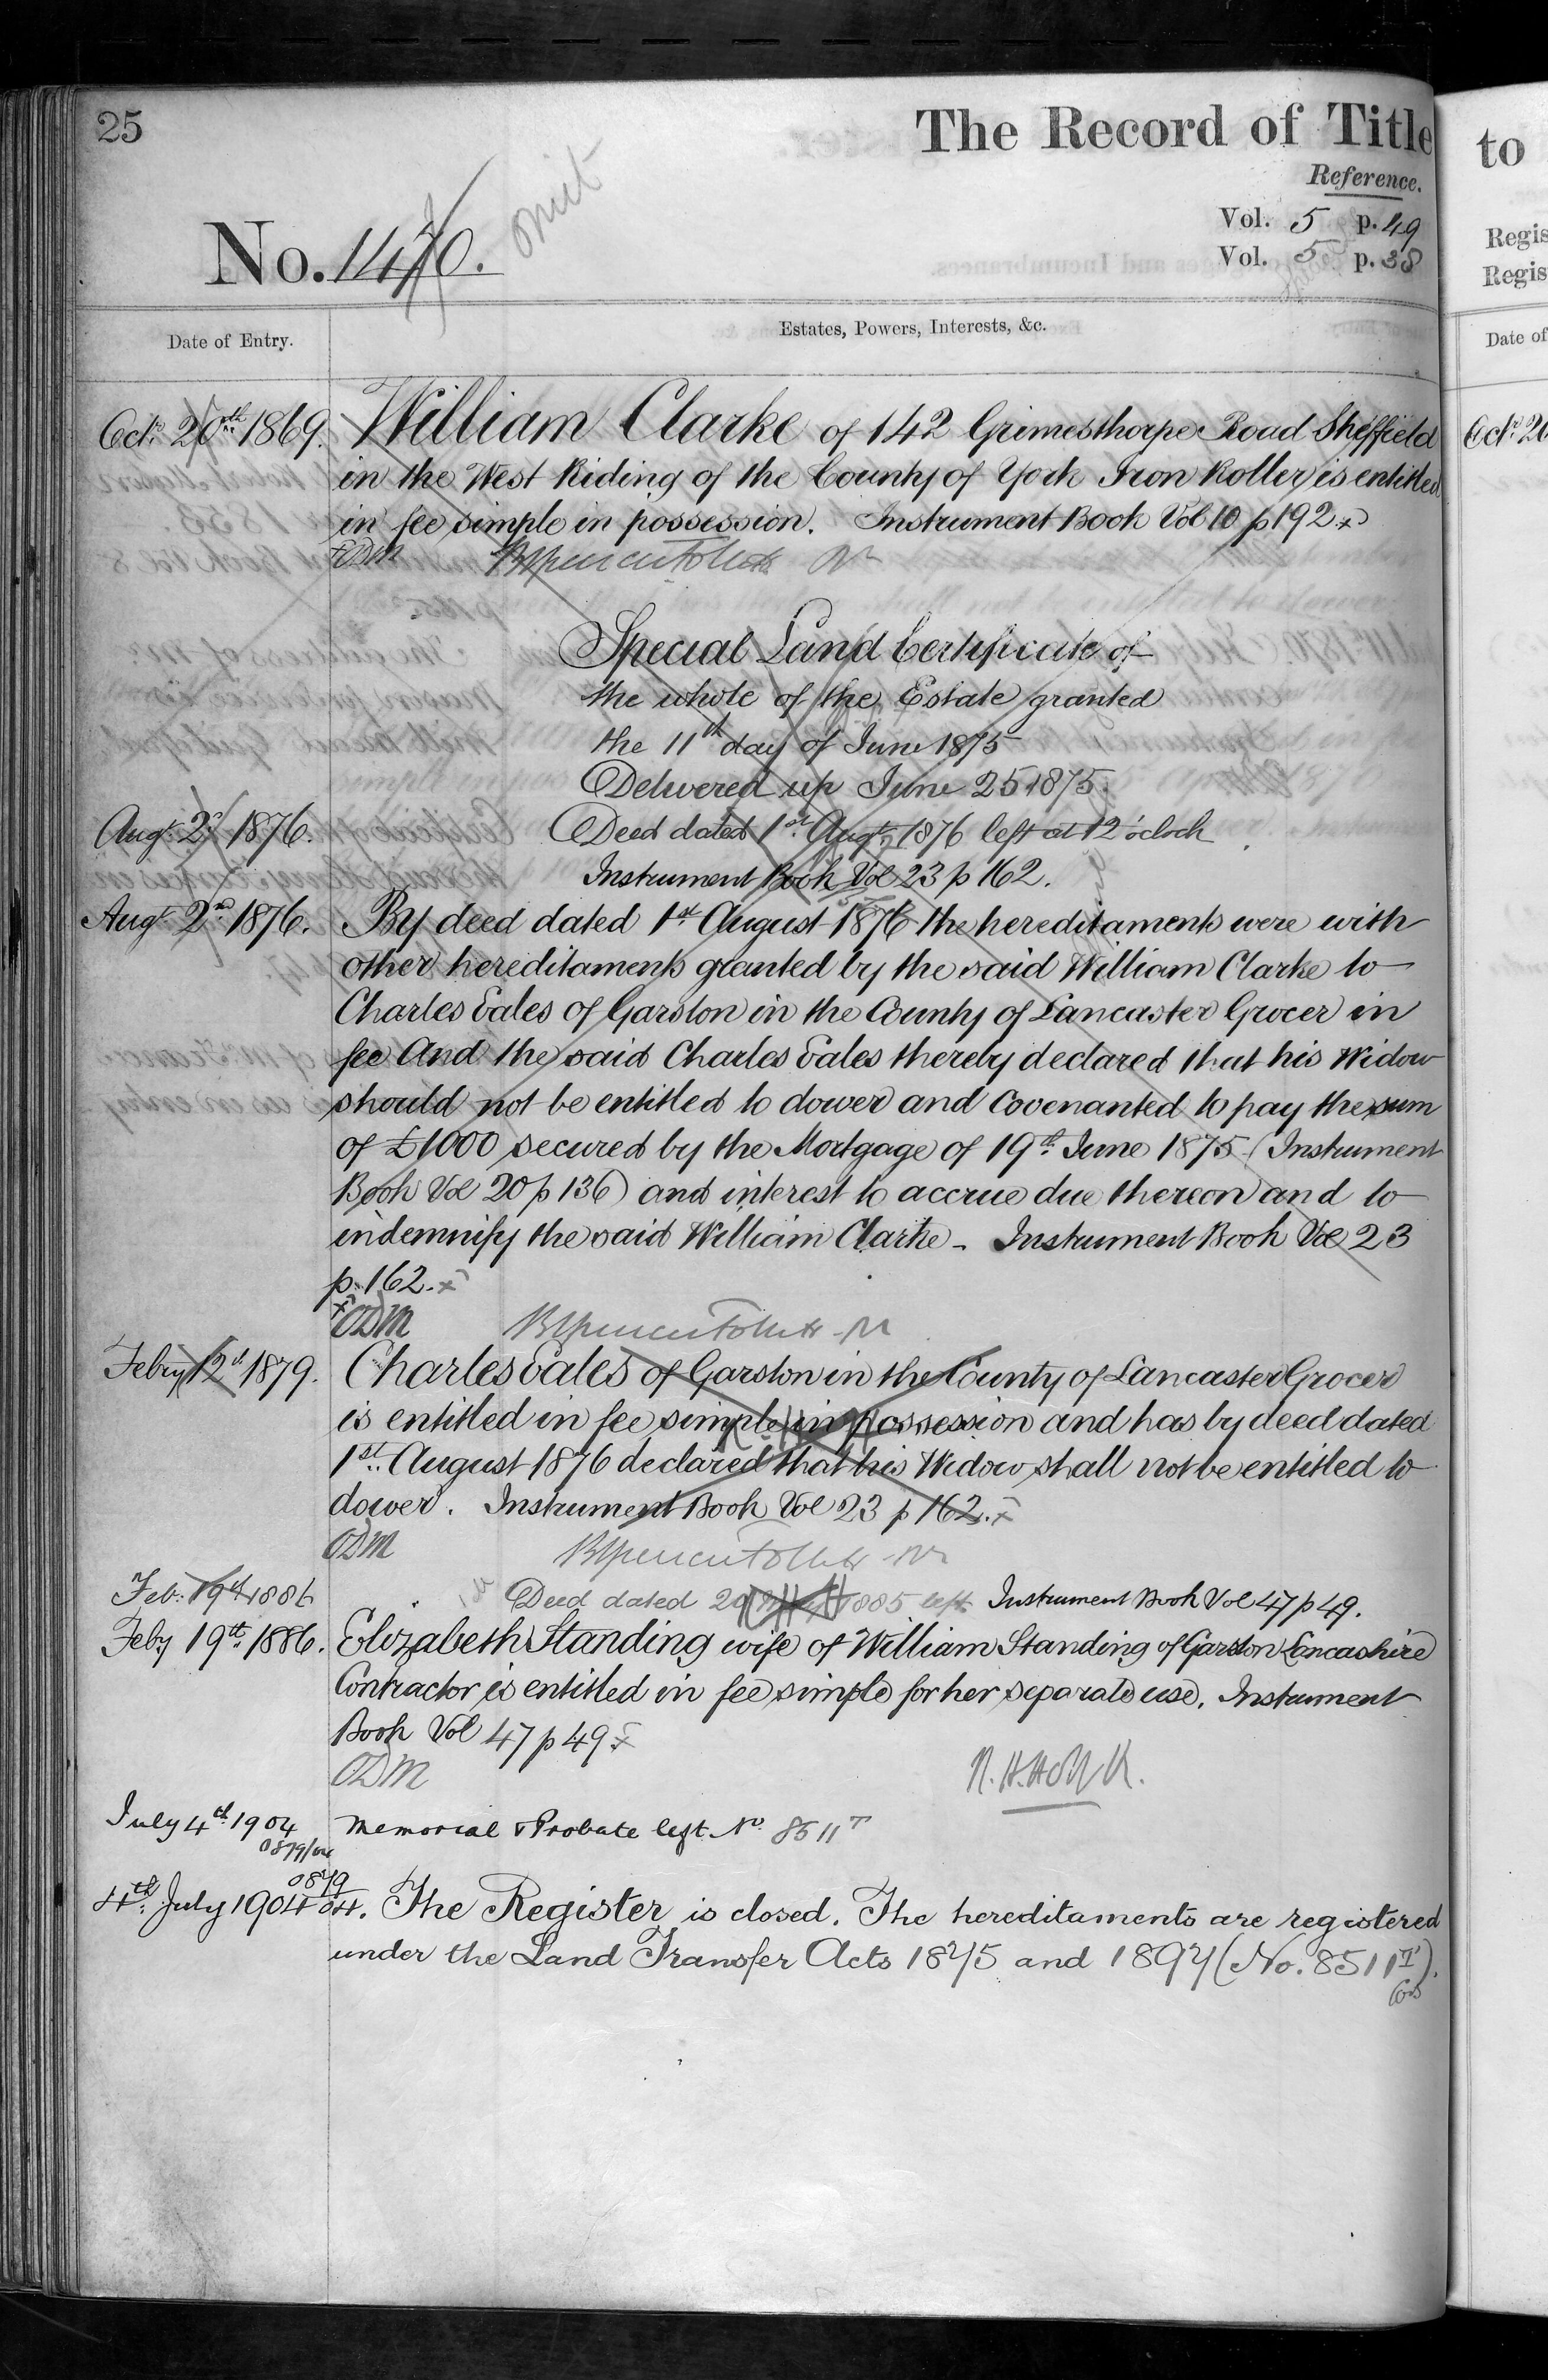 25
The Record of Title
Reference.
Vol. 5 p. 49
Vol. 5 p. 38
No. 1470.
omit
Date of Entry.
Estates, Powers, Interests, &c.
Octr. 20th 1869. William Clarke of 142 Grimesthorpe Road Sheffield
in the West Riding of the County of York Iron Roller is entitled
in fee simple in possession. Instrument Book Vol 10 p 192 x
ODM
Special Land Certificate of
the whole of the Estate granted
the 11th day of June 1875
Delivered up June 25 1875.
Augt. 2d 1876. Deed dated 1st Augt. 1876 left at 12 o'clock
Instrument Book Vol 23 p 162.
Augt. 2nd 1876. By deed dated 1st August 1876 the hereditaments were with
other hereditaments granted by the said William Clarke to
Charles Eales of Garston in the County of Lancaster Grocer in
fee And the said Charles Eales thereby declared that his Widow
should not be entitled to dower and covenanted to pay the sum
of £1000 secured by the Mortgage of 19th June 1875 (Instrument
Book Vol 20 p 136) and interest to accrue due thereon and to
indemnify the said William Clarke - Instrument Book Vol 23
p. 162. x
x ODM
Febry 12th 1879. Charles Eales of Garston in the County of Lancaster Grocer
is entitled in fee simple in possession and has by deed dated
1st August 1876 declared that his Widow shall not be entitled to
dower. Instrument Book Vol 23 p 162. x
ODM
Feb. 19th 1886 Deed dated 1885 left Instrument Book Vol 47 p 49.
Feby 19th 1886. Elizabeth Standing wife of William Standing of Garston Lancashire
Contractor is entitled in fee simple for her separate use. Instrument
Book Vol 47 p 49 x
ODM
July 4th 1904 Memorial & Probate left No. 8511T
0879/04
0879
4th July 1904 04. The Register is closed. The hereditaments are registered
under the Land Transfer Acts 1875 and 1897 (No. 8511T).
to
Regis
Regis
Date of
Octr. 20